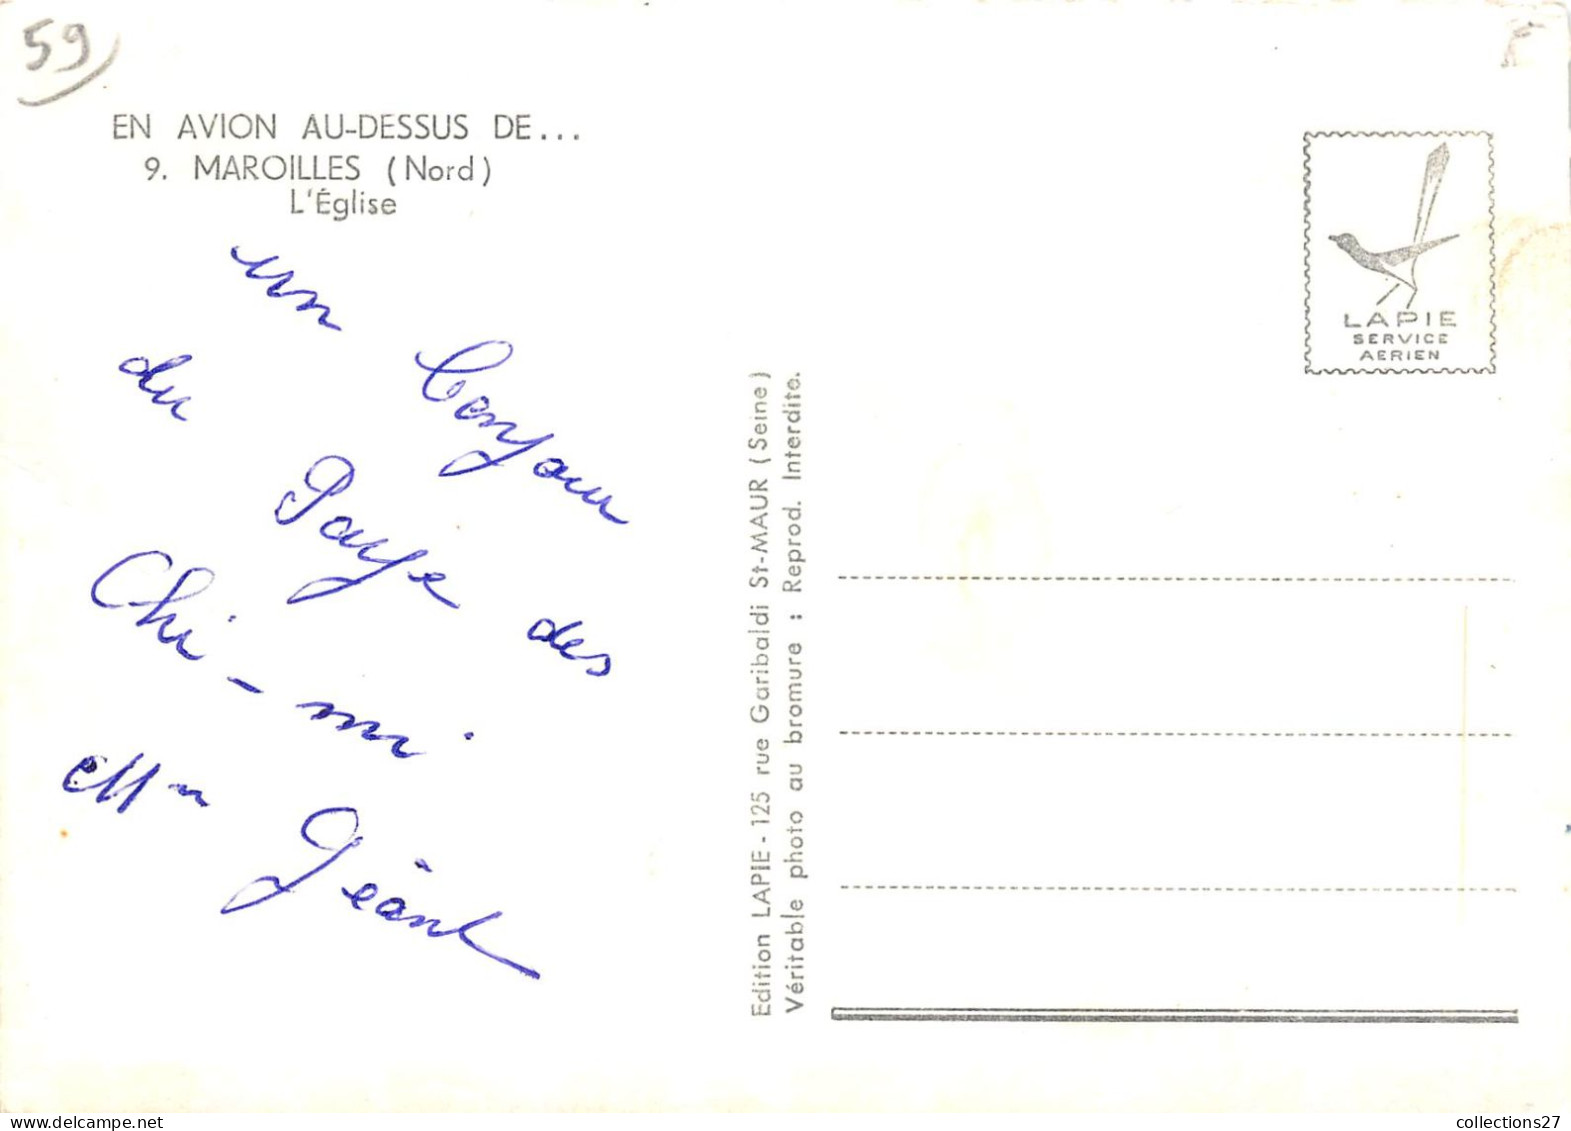 59
EN AVION AU-DESSUS DE...
9. MAROILLES (Nord)
L'Église
un Bonjour
du Paye des
Chi - mi
et Mm Géant
Edition LAPIE - 125 rue Garibaldi St-MAUR (Seine)
Véritable photo au bromure : Reprod. Interdite.
LAPIE
SERVICE
AERIEN
collections27